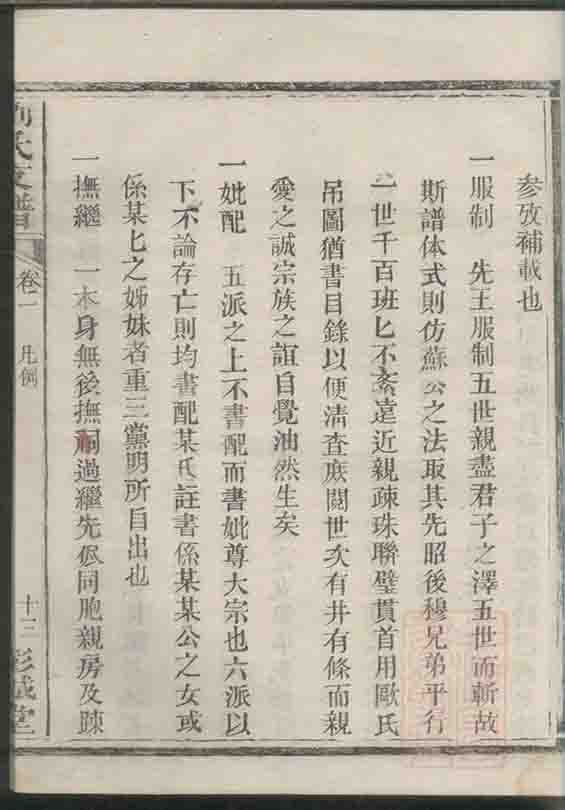 參攷補載也
一服制 先王服制五世親盡君子之澤五世而斬故
斯譜体式則仿蘇公之法取其先昭後穆兄弟平行
一世千百班匕不紊遠近親疎珠聯璧貫首用歐氏
吊圖猶書目錄以便淸查庶閱世次有井有條而親
愛之誠宗族之誼自覺油然生矣
一妣配 五派之上不書配而書妣尊大宗也六派以
下不論存亡則均書配某氏註書係某某公之女或
係某匕之姊妹者重三黨明所自出也
一撫繼 一本身無後撫嗣過繼先侭同胞親房及踈
劉氏支譜 卷一 凡例 十三 彭城堂